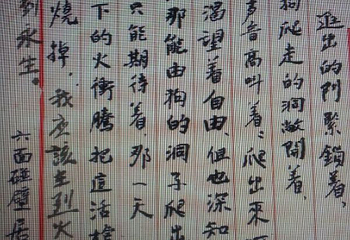 進出的門緊鎖着,
狗爬走的洞敞開着,
声音高叫着:爬出來
渴望着自由,但也深知
那能由狗的洞子爬出
只能期待着,那一天
下的火衝騰,把這活棺
燒掉,我应該在烈火
到永生。
六面碰壁居